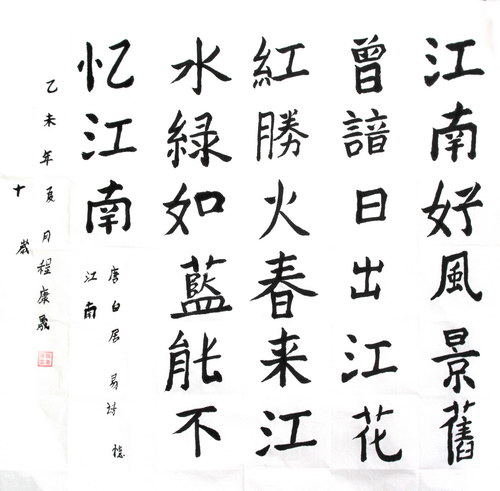 江南好風景舊
曾諳日出江花
紅勝火春来江
水緑如藍能不
忆江南
唐白居易诗憶
江南
乙未年夏月程康
十歲